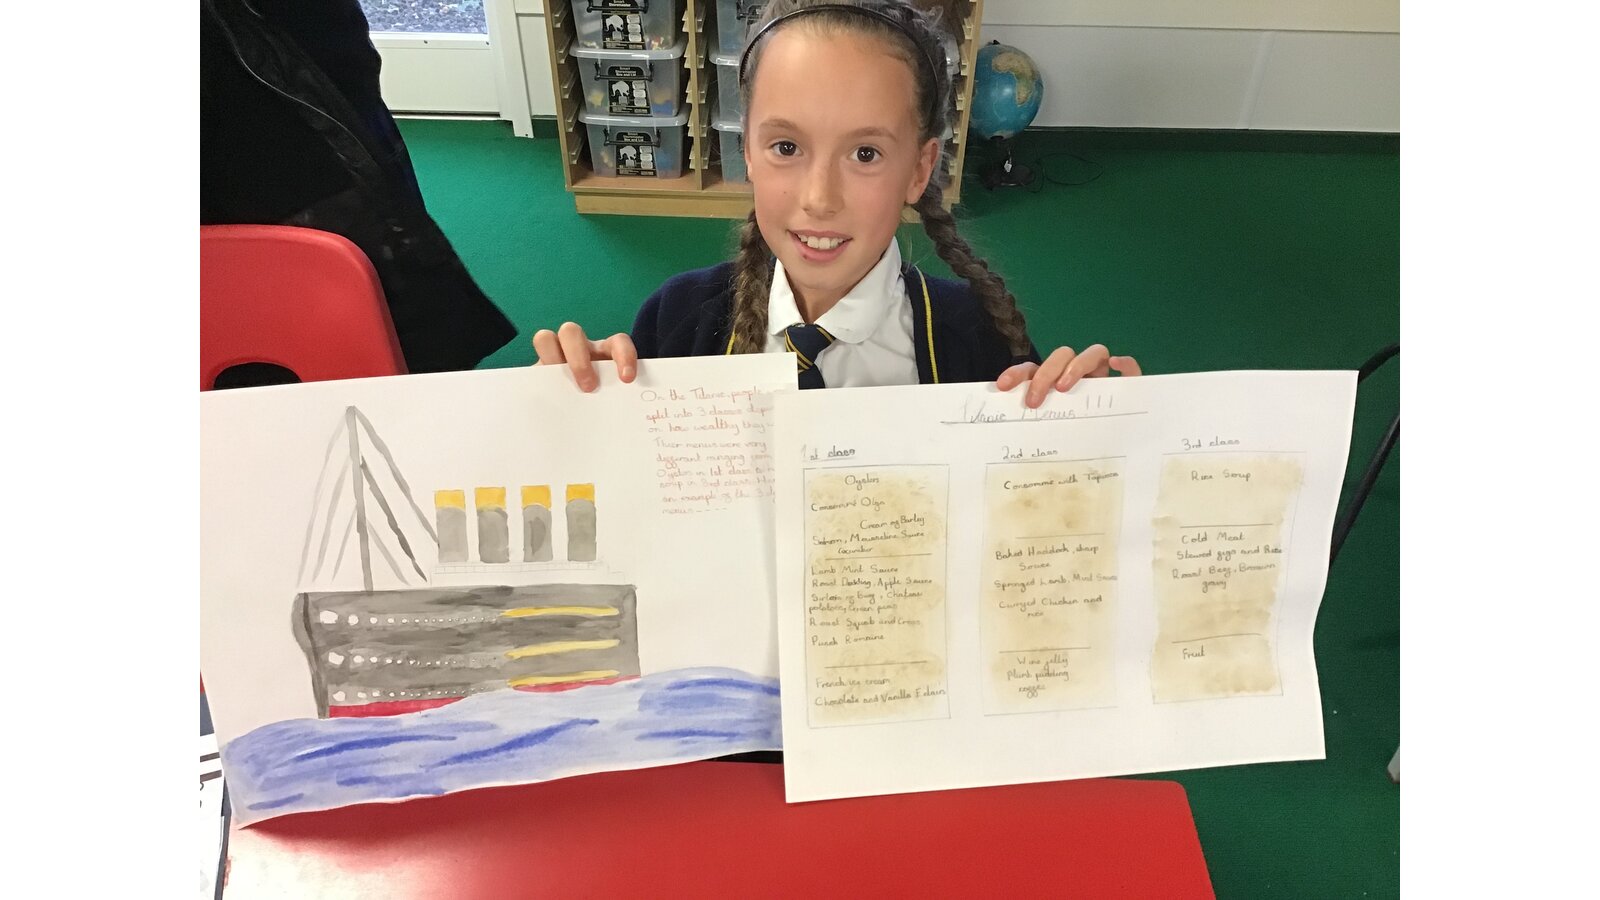 On the Titanic, people
split into 3 classes dep
on how wealthy they w
Thier menus were very
differant ranging from
Oysters in 1st class
soup in 3rd class. H
an example of the 3
menus ----
Titanic Menus!!!
1st class
Oysters
Consommé Olga
Cream of Barley
Salmon, Mousseline Sauce
Cucumber
Lamb Mint Sauce
Roast Duckling, Apple Sauce
Sirloin of Beef, Chateau
potatoes, Green peas
Roast Squab and Cress
Punch Romaine
French ice cream
Chocolate and Vanilla Eclairs
2nd class
Consomme with Tapioca
Baked Haddock, sharp
Sauce
Springed Lamb, Mint Sauce
Curryed Chicken and
rice
Wine jelly
Plumb pudding
coffee
3rd class
Rice Soup
Cold Meat
Stewed figs and Rice
Roast Beef, Brown
gravy
Fruit